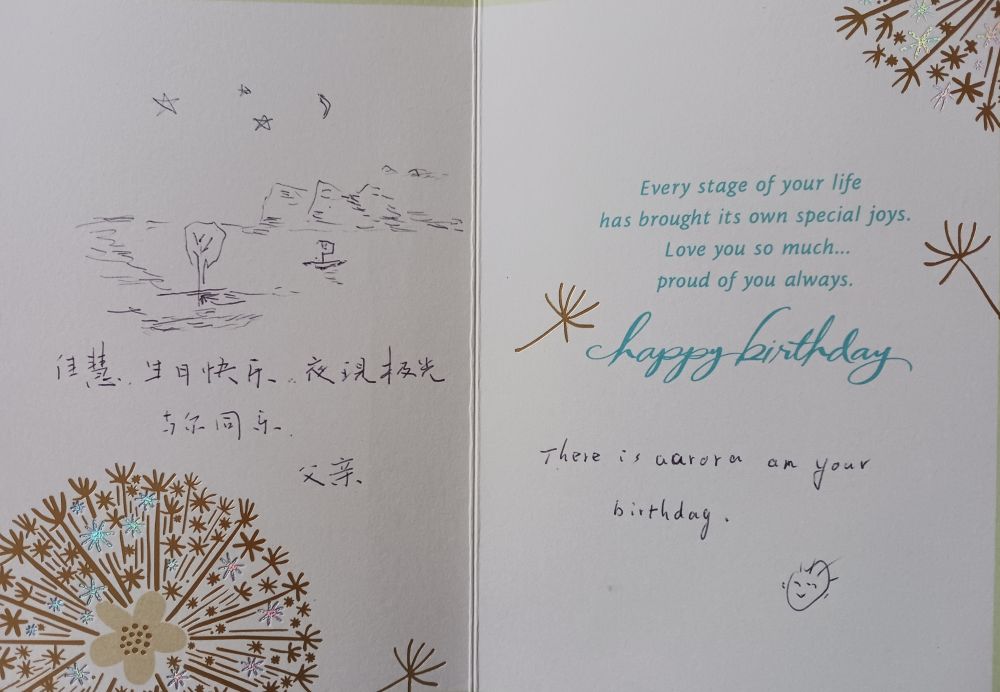 佳慧. 生日快乐. 夜现极光
与尔同乐.
父亲
Every stage of your life
has brought its own special joys.
Love you so much...
proud of you always.
happy birthday
There is aurora an your
birthday.